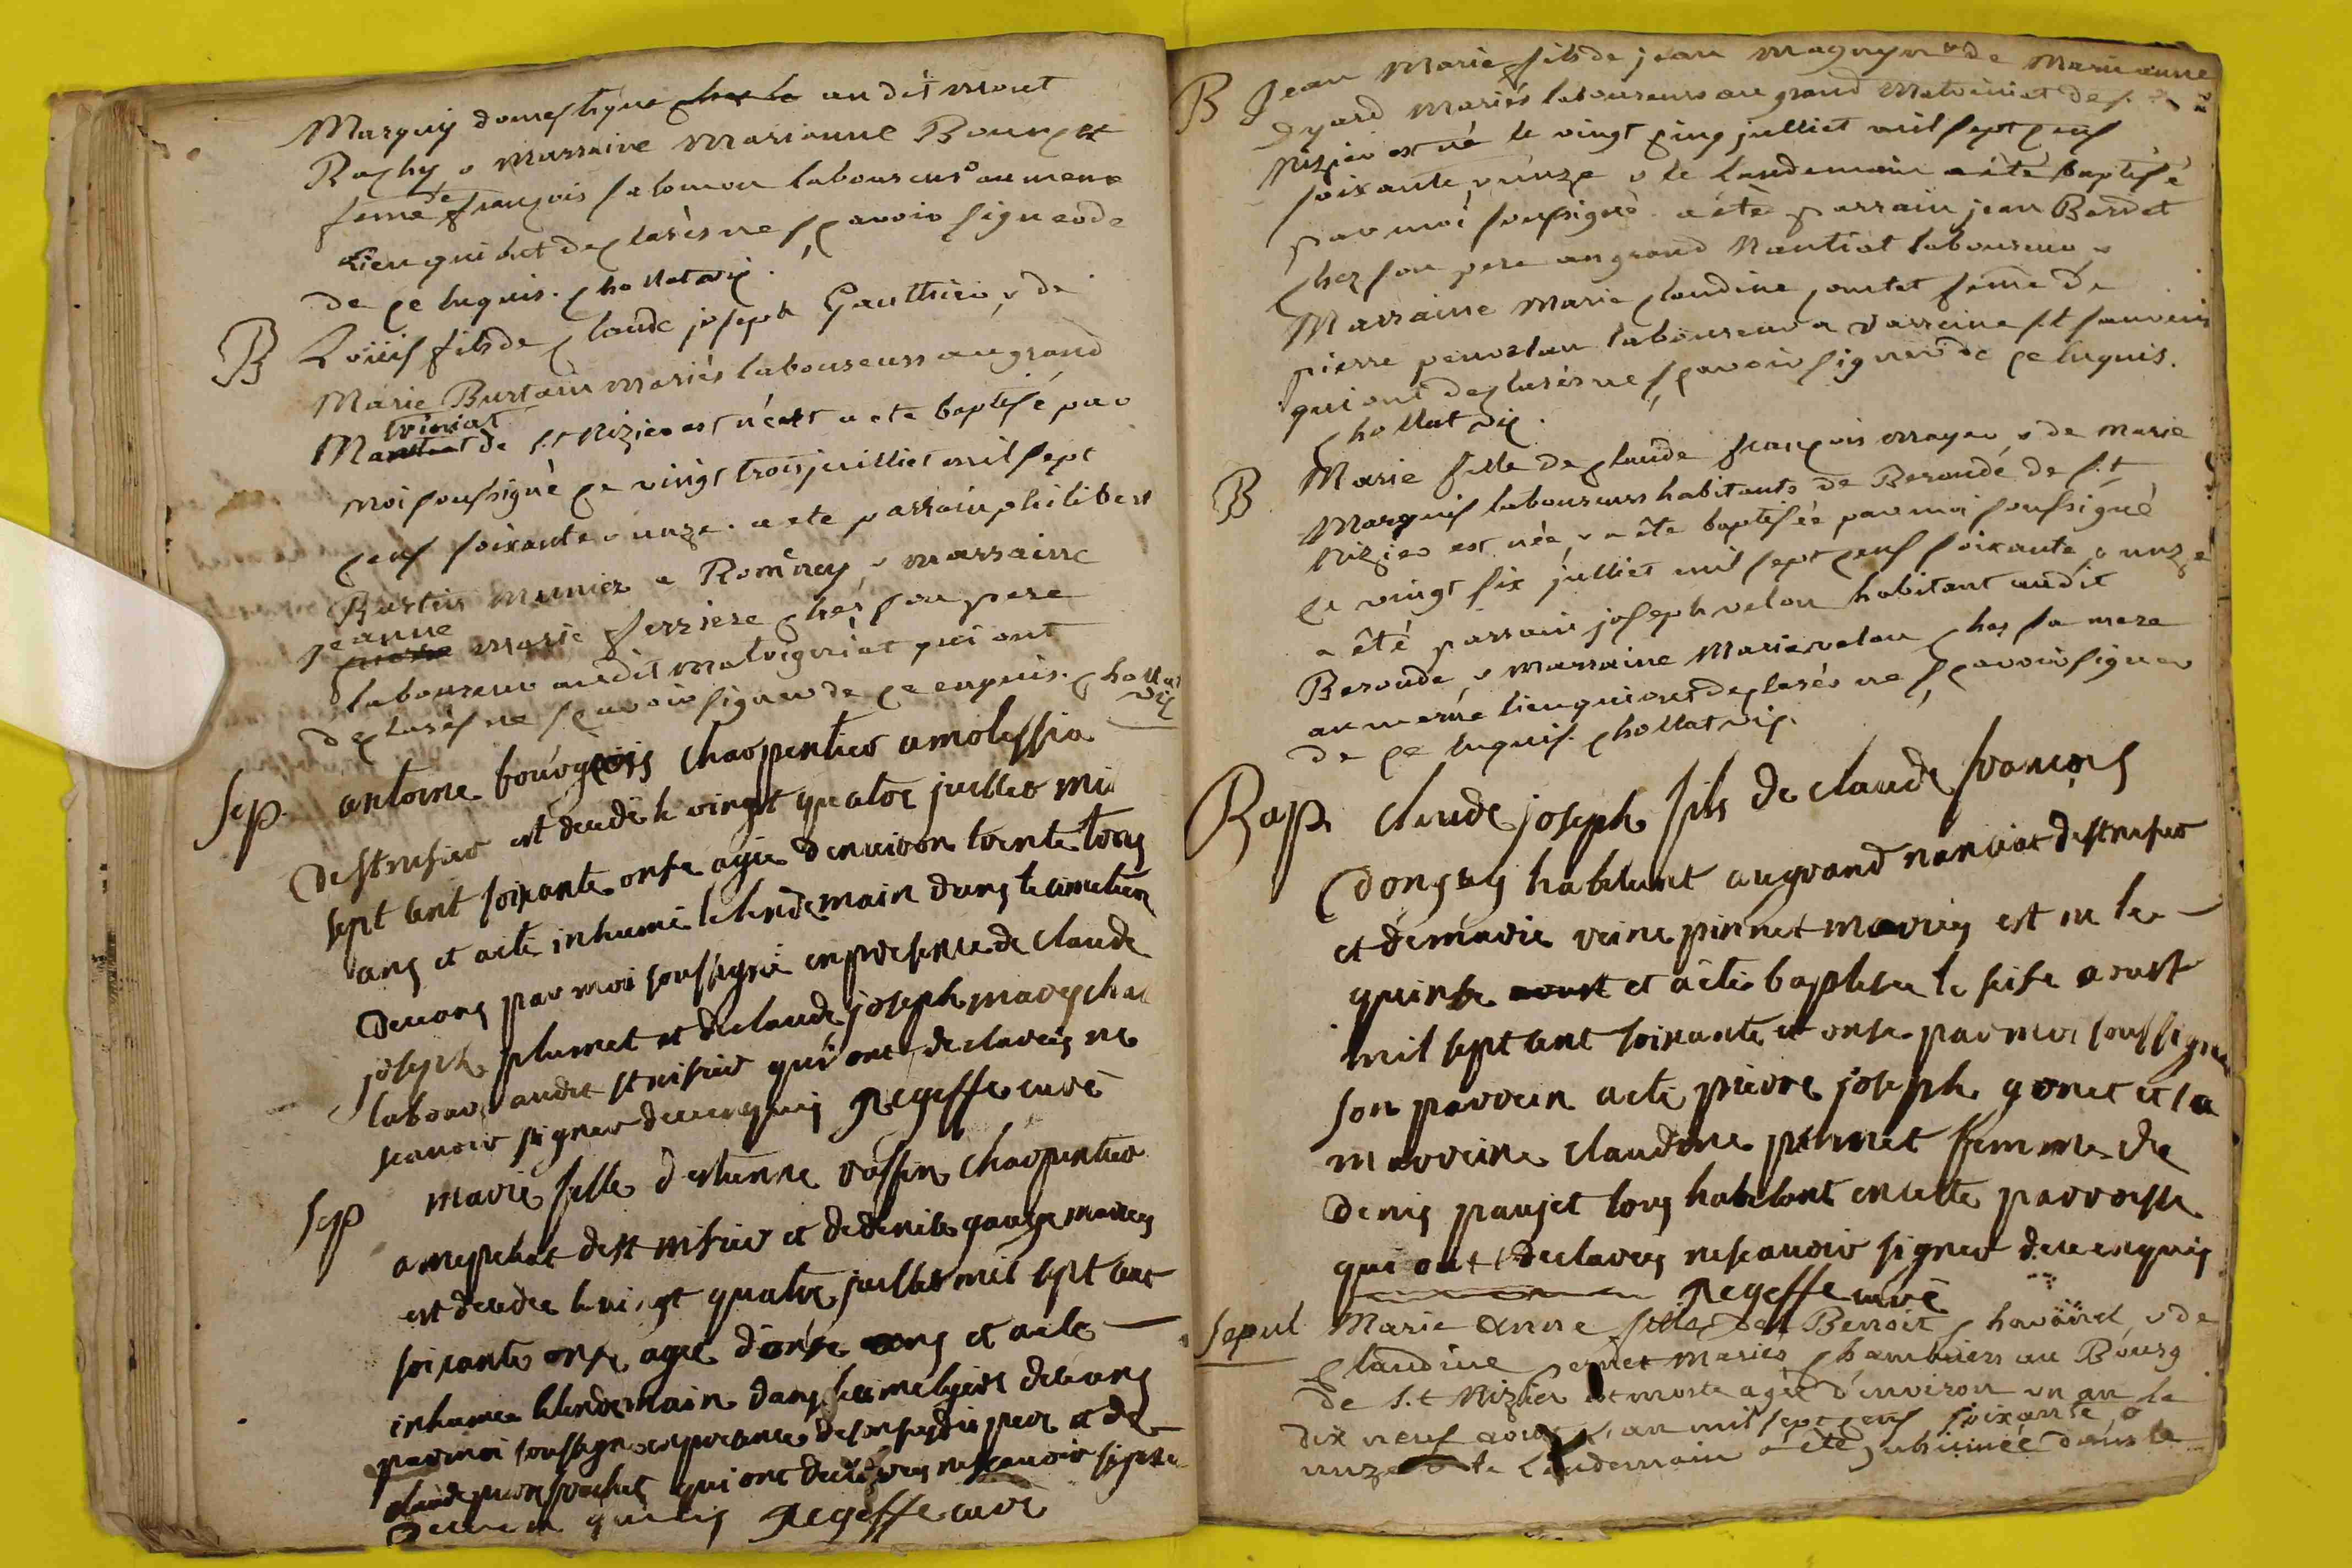 Marquis domestique audit Mont
Rachy & Marraine Marianne Bourget
feme de françois salomon laboureur au meme
lieu qui ont declarés ne sçavoir signer de
de ce enquis. chollat vic.
B Loüis fils de claude joseph Gauthier & de
Marie Burtain mariés laboureurs au grand
Malviniat de St Nizier est né et a ete baptisé par
moi soussigné ce vingt trois juilliet mil sept
cens soixante & unze. a ete parrain philibert
Burtin munier a Romnay & marraine
jeanne marie ferriere chés son pere
laboureur audit malvigniat qui ont
declarés ne sçavoir signer de ce enquis. chollat
vic
Sep. antoine bourgeois charpentier a molessia
de st nisier est decede le vingt quatre juillet mil
sept cent soixante onse agée denviron trente trois
ans et a été inhumé le lendemain dans le cimetiere
de ceans par moi soussigné en presence de claude
joseph plumet et de claude joseph marechal
labour. audit st nisier qui ont declarés ne
scavoir signer de ce enquis Regeffe curé
Sep marie fille d'estienne voisin charpentier
a de st nisier et de denise mariés
est decedée le vingt quatre juillet mil sept cent
soixante onse agée d'onse ans et a ete
inhumée le lendemain dans le cimetiere de ceans
par moi soussigné en presence de son pere et de
claude qui ont declarés ne scavoir signer
de ce enquis Regeffe curé
B Jean Marie fils de jean Magnyn & de Marianne
Dyard mariés laboureurs au grand Malviniat de s.t
Nizier est né le vingt cinq julliet mil sept cens
soixante & unze & le landemain a été baptisé
par moi soussigné. a été parrain jean Bardet
chez son pere au grand Nantiat laboureur &
Marraine Marie claudine feme de
pierre laboureur a Varreine s.t sauveur
qui ont declarés ne sçavoir signer de ce enquis.
chollat vic.
B Marie fille de claude françois & de marie
Marquis laboureurs habitants de Beroude de s.t
Nizier est née & a été baptisée par moi soussigné
ce vingt six julliet mil sept cens soixante & unze
a été parrain joseph velon habitant audit
Beroude & marraine Marie velon ches sa mere
au meme lieu qui ont declarés ne sçavoir signer
de ce enquis. chollat vic.
Bap. claude joseph fils de claude françois
habitant au grand nanciat de st nisier
et de marie reine pinnet mariés est né le
quinse et a été baptisée le seise aoust
mil sept cent soixante et onse par moi soussigné
son parrein a été pierre joseph gonet et sa
marreine claudine pinnet femme de
denis paujet tous habitant en cette parroisse
qui ont declarés ne scavoir signer de ce enquis
Regeffe curé
Sepul Marie Anne fille de Benoit & de
claudine mariés au Bourg
de S.t Nizier est morte agée d'environ un an le
dix neuf aout l'an mil sept cens soixante &
unze & le Landemain a été inhumée dans le